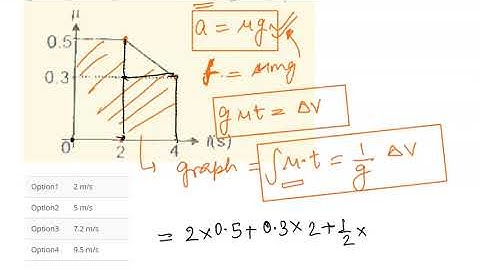 μ
0.5
0.3
0
2
4
t(s)
a = μg
f = μmg
gμt = ΔV
graph = ∫μ·t = 1/g ΔV
Option1 2 m/s
Option2 5 m/s
Option3 7.2 m/s
Option4 9.5 m/s
= 2×0.5+0.3×2+1/2×